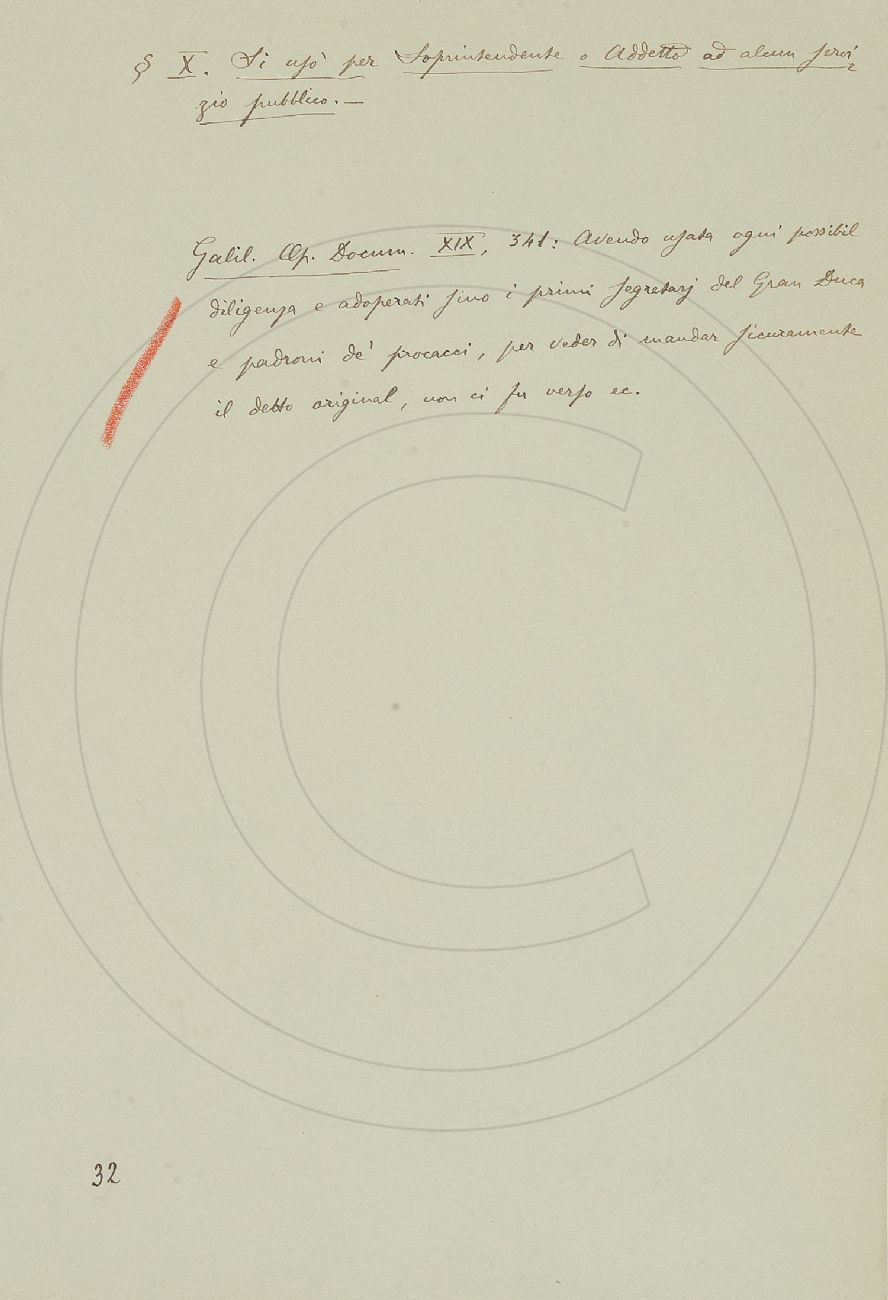 § X. Si usò per Soprintendente o Addetto ad alcun servi
zio pubblico. —
Galil. Op. Docum. XIX, 341: Avendo usata ogni possibil
diligenza e adoperati sino i primi segretarj del Gran Duca
e padroni de' procacci, per veder di mandar sicuramente
il detto original, non ci fu verso ec.
32